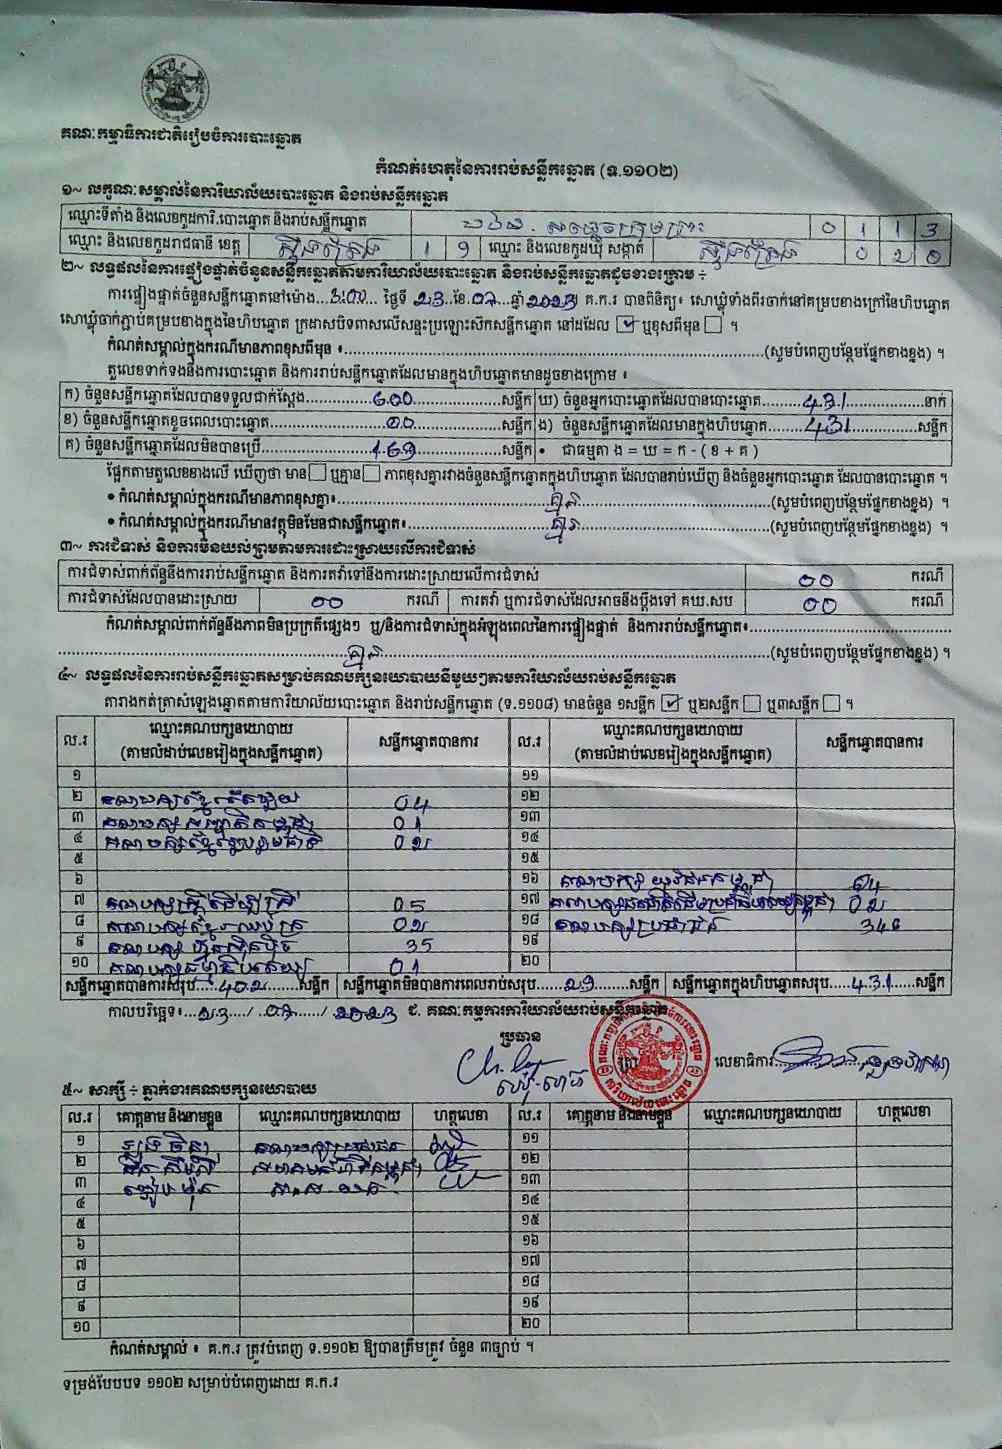 គណៈកម្មាធិការជាតិរៀបចំការបោះឆ្នោត
កំណត់ហេតុនៃការរាប់សន្លឹកឆ្នោត (ទ.១១០២)
១~ លក្ខណៈសម្គាល់នៃការិយាល័យបោះឆ្នោត និងរាប់សន្លឹកឆ្នោត
ឈ្មោះទីតាំង និងលេខកូដការិ.បោះឆ្នោត និងរាប់សន្លឹកឆ្នោត 0 1 1 3
ឈ្មោះ និងលេខកូដរាជធានី ខេត្ត ស្ទឹងត្រែង 1 9 ឈ្មោះ និងលេខកូដឃុំ សង្កាត់ ស្ទឹងត្រែង
២~ លទ្ធផលនៃការផ្ទៀងផ្ទាត់ចំនួនសន្លឹកឆ្នោតតាមការិយាល័យបោះឆ្នោត និងរាប់សន្លឹកឆ្នោតដូចខាងក្រោម ÷
ការផ្ទៀងផ្ទាត់ចំនួនសន្លឹកឆ្នោតនៅម៉ោង... ថ្ងៃទី 23 ខែ 07 ឆ្នាំ 2023 គ.ក.រ បានពិនិត្យ៖ សោឃ្លុំទាំងពីរចាក់នៅគម្របខាងក្រៅនៃហិបឆ្នោត
សោឃ្លុំចាក់ភ្ជាប់គម្របខាងក្នុងនៃហិបឆ្នោត ក្រដាសបិទពាសលើសន្ទះប្រឡោះសឹកសន្លឹកឆ្នោត នៅដដែល ☑ ឬខុសពីមុន ☐ ។
កំណត់សម្គាល់ក្នុងករណីមានភាពខុសពីមុន ៖...(សូមបំពេញបន្ថែមផ្នែកខាងខ្នង) ។
តួលេខទាក់ទងនឹងការបោះឆ្នោត និងការរាប់សន្លឹកឆ្នោតដែលមានក្នុងហិបឆ្នោតមានដូចខាងក្រោម ៖
ក) ចំនួនសន្លឹកឆ្នោតដែលបានទទួលជាក់ស្តែង...600...សន្លឹក ឃ) ចំនួនអ្នកបោះឆ្នោតដែលបានបោះឆ្នោត...431...នាក់
ខ) ចំនួនសន្លឹកឆ្នោតខូចពេលបោះឆ្នោត...00...សន្លឹក ង) ចំនួនសន្លឹកឆ្នោតដែលមានក្នុងហិបឆ្នោត...431...សន្លឹក
គ) ចំនួនសន្លឹកឆ្នោតដែលមិនបានប្រើ...169...សន្លឹក • ជាធម្មតា ង = ឃ = ក - ( ខ + គ )
ផ្អែកតាមតួលេខខាងលើ ឃើញថា មាន ☐ ឬគ្មាន ☐ ភាពខុសគ្នារវាងចំនួនសន្លឹកឆ្នោតក្នុងហិបឆ្នោត ដែលបានរាប់ឃើញ និងចំនួនអ្នកបោះឆ្នោត ដែលបានបោះឆ្នោត ។
• កំណត់សម្គាល់ក្នុងករណីមានភាពខុសគ្នា៖...គ្មាន...(សូមបំពេញបន្ថែមផ្នែកខាងខ្នង) ។
• កំណត់សម្គាល់ក្នុងករណីមានវត្ថុមិនមែនជាសន្លឹកឆ្នោត៖...គ្មាន...(សូមបំពេញបន្ថែមផ្នែកខាងខ្នង) ។
៣~ ការជំទាស់ និងការមិនយល់ព្រមតាមការដោះស្រាយលើការជំទាស់
ការជំទាស់ពាក់ព័ន្ធនឹងការរាប់សន្លឹកឆ្នោត និងការតវ៉ាទៅនឹងការដោះស្រាយលើការជំទាស់ 00 ករណី
ការជំទាស់ដែលបានដោះស្រាយ 00 ករណី ការតវ៉ា ឬការជំទាស់ដែលអាចនឹងប្តឹងទៅ គឃ.សប 00 ករណី
កំណត់សម្គាល់ពាក់ព័ន្ធនឹងភាពមិនប្រក្រតីផ្សេងៗ ឬ/និងការជំទាស់ក្នុងអំឡុងពេលនៃការផ្ទៀងផ្ទាត់ និងការរាប់សន្លឹកឆ្នោត៖...
...គ្មាន...(សូមបំពេញបន្ថែមផ្នែកខាងខ្នង) ។
៤~ លទ្ធផលនៃការរាប់សន្លឹកឆ្នោតសម្រាប់គណបក្សនយោបាយនីមួយៗតាមការិយាល័យរាប់សន្លឹកឆ្នោត
តារាងកត់ត្រាសំឡេងឆ្នោតតាមការិយាល័យបោះឆ្នោត និងរាប់សន្លឹកឆ្នោត (ទ.១១០៨) មានចំនួន ១សន្លឹក ☑ ឬ២សន្លឹក ☐ ឬ៣សន្លឹក ☐ ។
ល.រ ឈ្មោះគណបក្សនយោបាយ (តាមលំដាប់លេខរៀងក្នុងសន្លឹកឆ្នោត) សន្លឹកឆ្នោតបានការ ល.រ ឈ្មោះគណបក្សនយោបាយ (តាមលំដាប់លេខរៀងក្នុងសន្លឹកឆ្នោត) សន្លឹកឆ្នោតបានការ
១ ១១
២ 04 ១២
៣ 01 ១៣
៤ គណបក្សខ្មែររួបរួមជាតិ 02 ១៤
៥ ១៥
៦ ១៦ គណបក្សយុវជនកម្ពុជា 04
៧ គណបក្សស្ត្រីដើម្បីស្ត្រី 05 ១៧ 02
៨ 02 ១៨ គណបក្សប្រជាជន 346
៩ គណបក្សហ៊្វុនស៊ិនប៉ិច 35 ១៩
១០ គណបក្សធម្មាធិបតេយ្យ 01 ២០
សន្លឹកឆ្នោតបានការសរុប...402...សន្លឹក សន្លឹកឆ្នោតមិនបានការពេលរាប់សរុប...29...សន្លឹក សន្លឹកឆ្នោតក្នុងហិបឆ្នោតសរុប...431...សន្លឹក
កាលបរិច្ឆេទ៖...23.../...07.../...2023 ជ. គណៈកម្មការការិយាល័យរាប់សន្លឹកឆ្នោត
ប្រធាន
លេខាធិការ
៥~ សាក្សី ÷ ភ្នាក់ងារគណបក្សនយោបាយ
ល.រ គោត្តនាម និងនាមខ្លួន ឈ្មោះគណបក្សនយោបាយ ហត្ថលេខា ល.រ គោត្តនាម និងនាមខ្លួន ឈ្មោះគណបក្សនយោបាយ ហត្ថលេខា
១ គណបក្សប្រជាជន ១១
២ ១២
៣ ១៣
៤ ១៤
៥ ១៥
៦ ១៦
៧ ១៧
៨ ១៨
៩ ១៩
១០ ២០
កំណត់សម្គាល់ ៖ គ.ក.រ ត្រូវបំពេញ ទ.១១០២ ឱ្យបានត្រឹមត្រូវ ចំនួន ៣ច្បាប់ ។
ទម្រង់បែបបទ ១១០២ សម្រាប់បំពេញដោយ គ.ក.រ